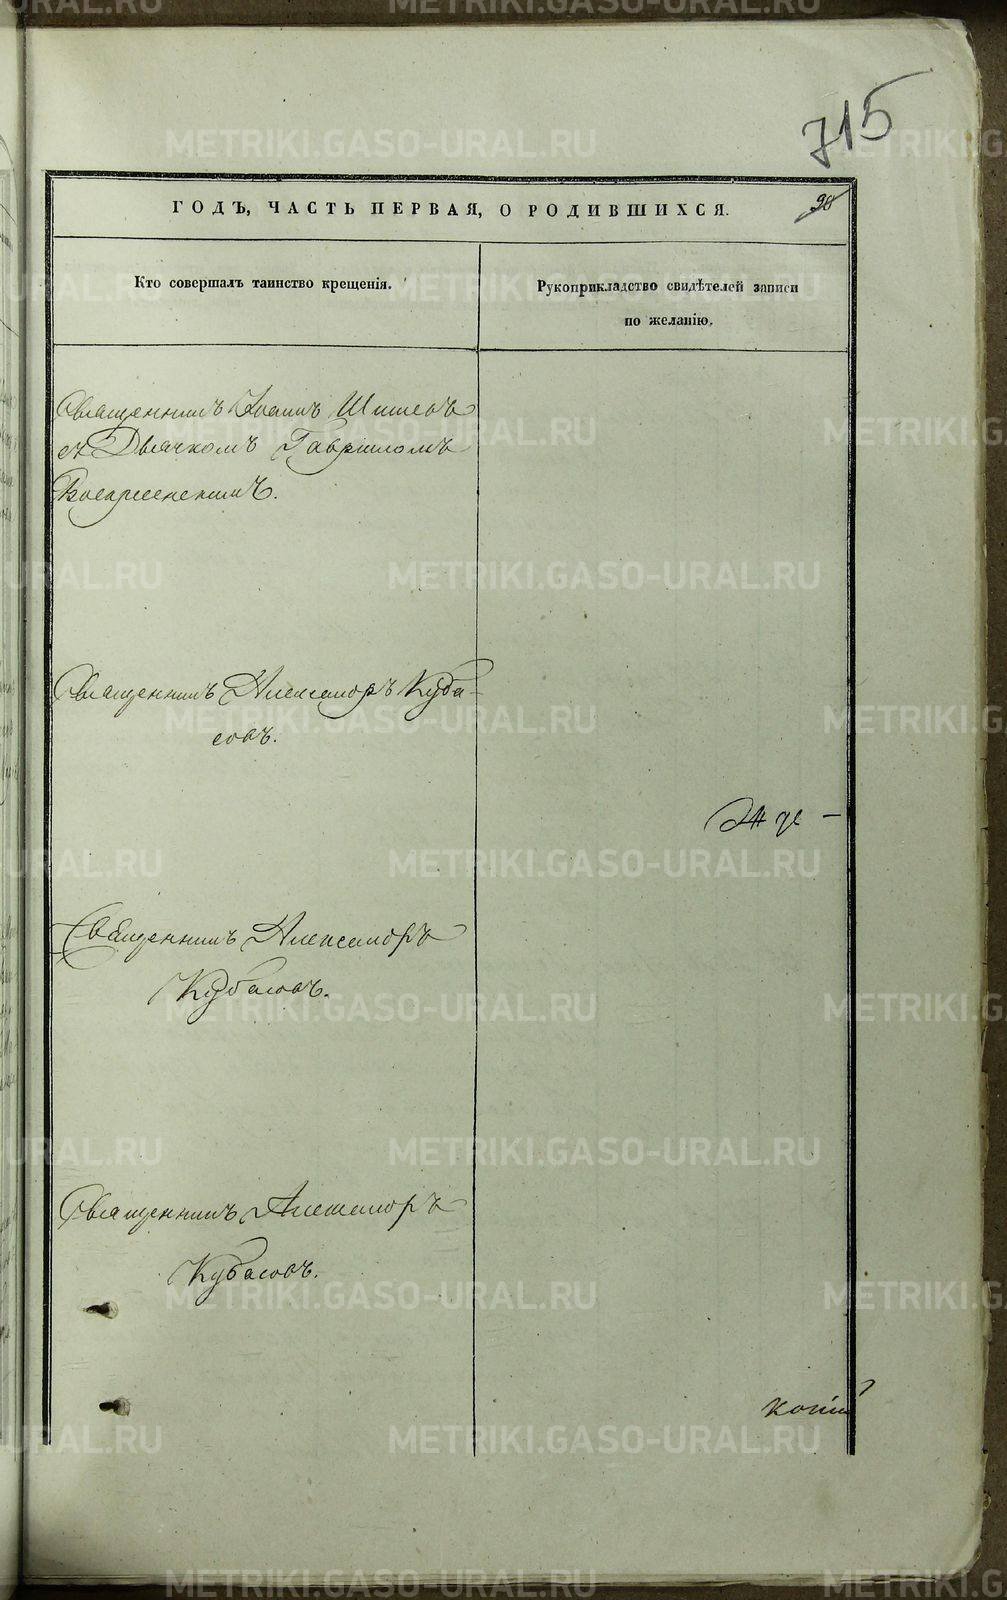 715
ГОДЪ, ЧАСТЬ ПЕРВАЯ, О РОДИВШИХСЯ.
90
Кто совершалъ таинство крещенія.
Рукоприкладство свидѣтелей записи
по желанію.
Священникъ Іоаннъ Шишевъ
съ Дьячкомъ Гавріиломъ
Воскресенскимъ.
Священникъ Александръ Куба-
совъ.
Священникъ Александръ
Кубасовъ.
Священникъ Александръ
Кубасовъ.
копіи
METRIKI.GASO-URAL.RU